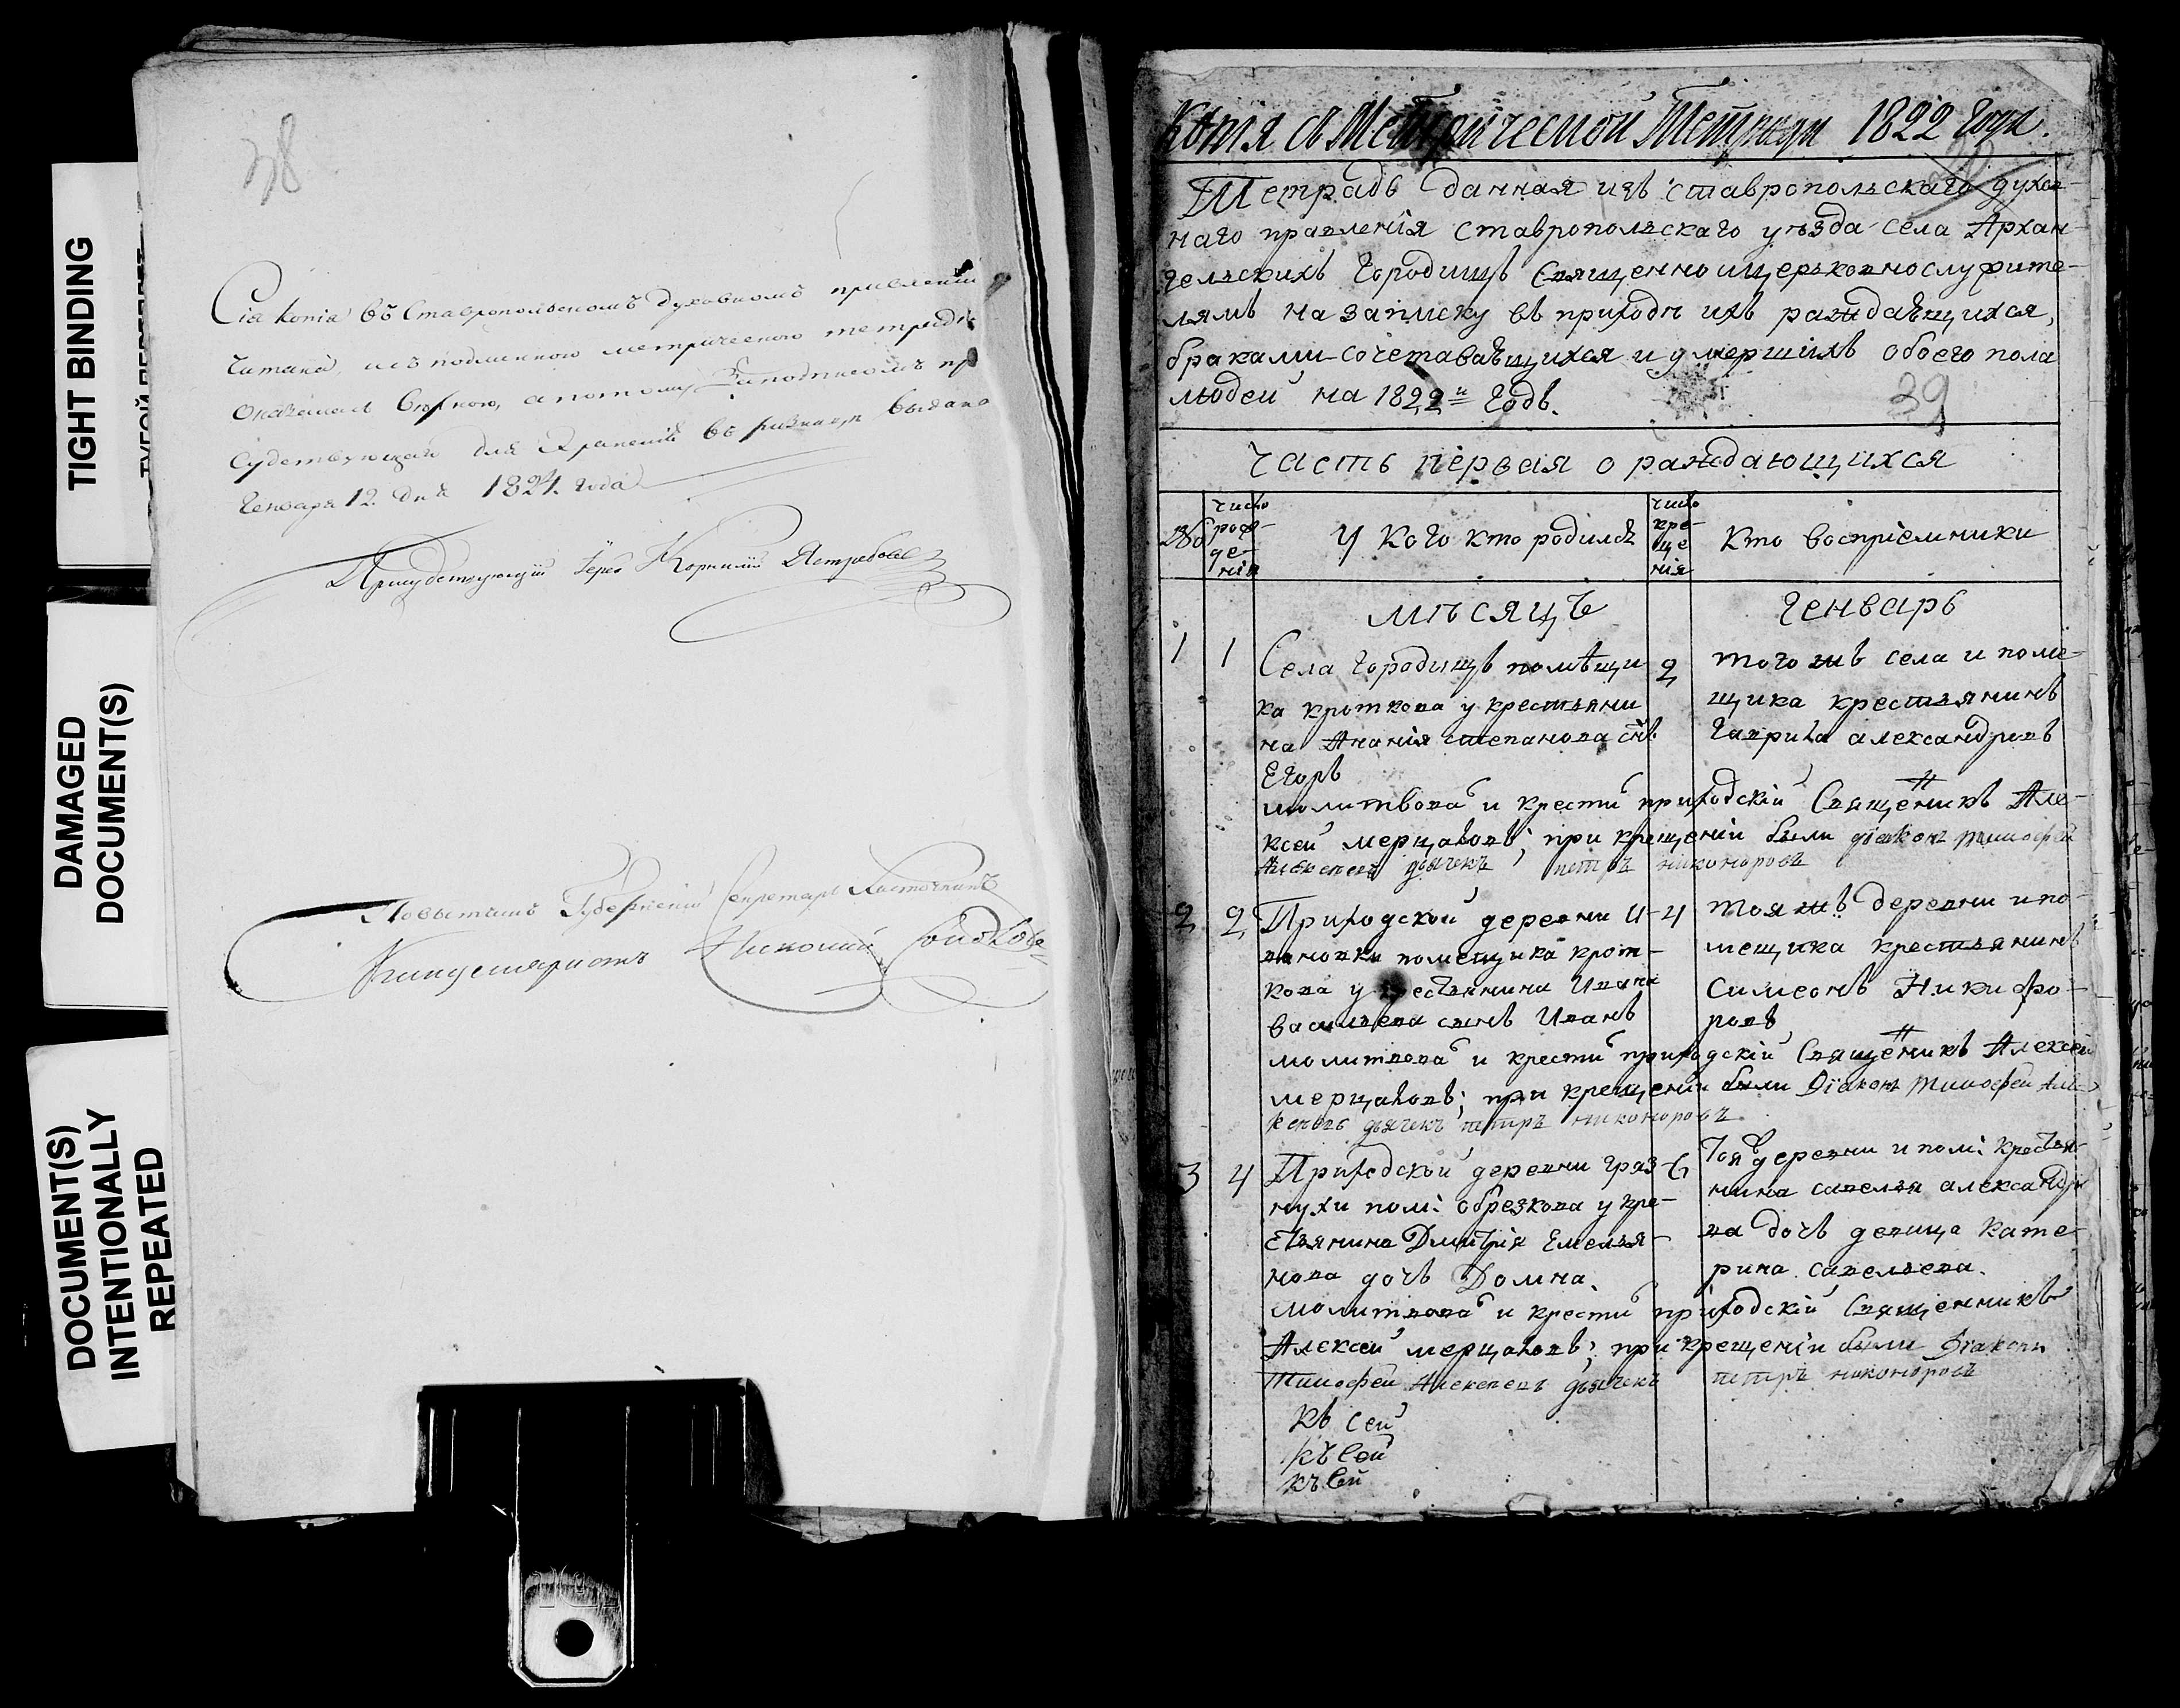 TIGHT BINDING
DAMAGED
DOCUMENT(S)
DOCUMENT(S)
INTENTIONALLY
REPEATED
38
Сіа копіа въ Ставропольскомъ духовномъ правленіи
читана, и съ подлинною метрическою тетрадью
оказалась верною, а потому за подписомъ при
судствующаго для храненія въ ризницу выдана
Генваря 12. дня 1824. года
Присудствующій Іерей Корнилій Ястребовъ
Повытчикъ Губернскій Секретарь Ласточкинъ
Канцеляристъ Николай
Копія съ Метрической Тетради 1822 Года.
Тетрадь данная изъ ставропольскаго духов-
наго правленія ставропольскаго уѣзда села Архан-
гельскихъ Городищъ Священно и церьковнослужите-
лямъ на записку въ приходѣ ихъ раждающихся,
браками сочетавающихся и умершихъ обоего пола
людей на 1822й Годъ.
39
Часть первая о раждающихся
№
число рож-де-нія
У Кого кто родился
число кре-ще-нія
Кто воспріемники
мѣсяцъ
Генварь
1
1
Села Городищъ помѣщи
ка кроткова у крестьяни
на Ананія степанова снъ
Егоръ
2
того жъ села и поме-
щика крестьянинъ
Гаврила александровъ
молитвовал и крестил приходскій Священикъ Але-
ксей мерцаловъ; при крещеніи были діаконъ тимофей
Алексеевъ дьячекъ петръ никоноровъ
2
2
Приходской деревни И-
вановки помещика крот-
кова у крестьянина Ивана
васильева сынъ Иванъ
4
тоя жъ деревни и по-
мещика крестьянинъ
симеонъ Никифо-
ровъ
молитвовал и крестил приходскій Священикъ Алексей
мерцаловъ; при крещеніи были Діаконъ тимофей Але-
ксеевъ дьячекъ петръ никоноровъ
3
4
Приходской деревни гряз-
нухи пом: обрезкова у кре-
стьянина Дмитрія Емелья-
нова дочь Домна.
6
Тояжъ деревни и пом: крестья-
нина савелья александро
ва дочь девица кате-
рина савельева.
молитвовал и крестил приходскій Священникъ
Алексей мерцаловъ; при крещеніи были Діаконъ
тимофей Алексеевъ дьячекъ петръ никоноровъ
Къ сей
къ сей
къ сей